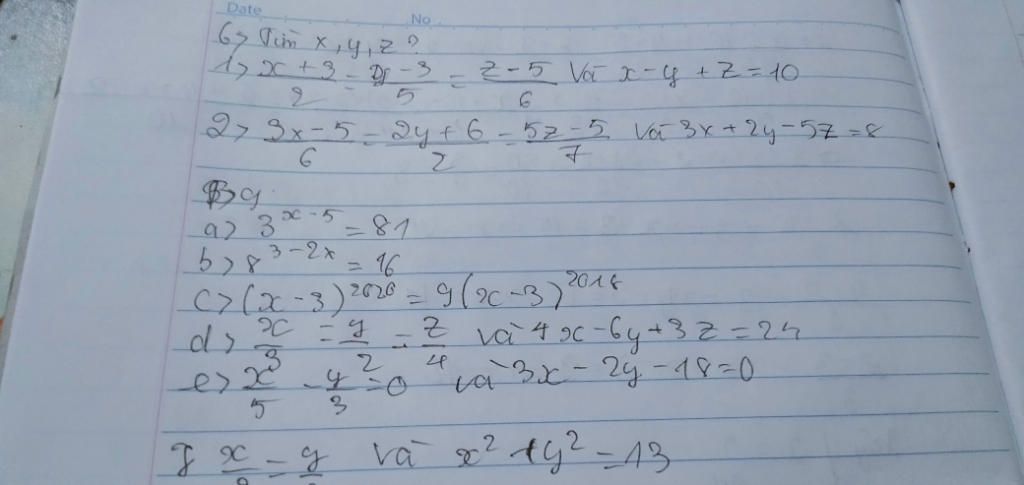 Date No
6> Tìm x, y, z ?
1> \frac{x+3}{2} = \frac{y-3}{5} = \frac{z-5}{6} Và x-y+z=10
2> \frac{3x-5}{6} = \frac{2y+6}{2} = \frac{5z-5}{7} Và 3x+2y-5z=8
B>9
a> 3^{x-5} = 81
b> 8^{3-2x} = 16
c> (x-3)^{2020} = 9(x-3)^{2018}
d> \frac{x}{3} = \frac{y}{2} = \frac{z}{4} và 4x-6y+3z=24
e> \frac{x}{5} - \frac{y}{3} = 0 và 3x-2y-18=0
x = y và x^2+y^2=13